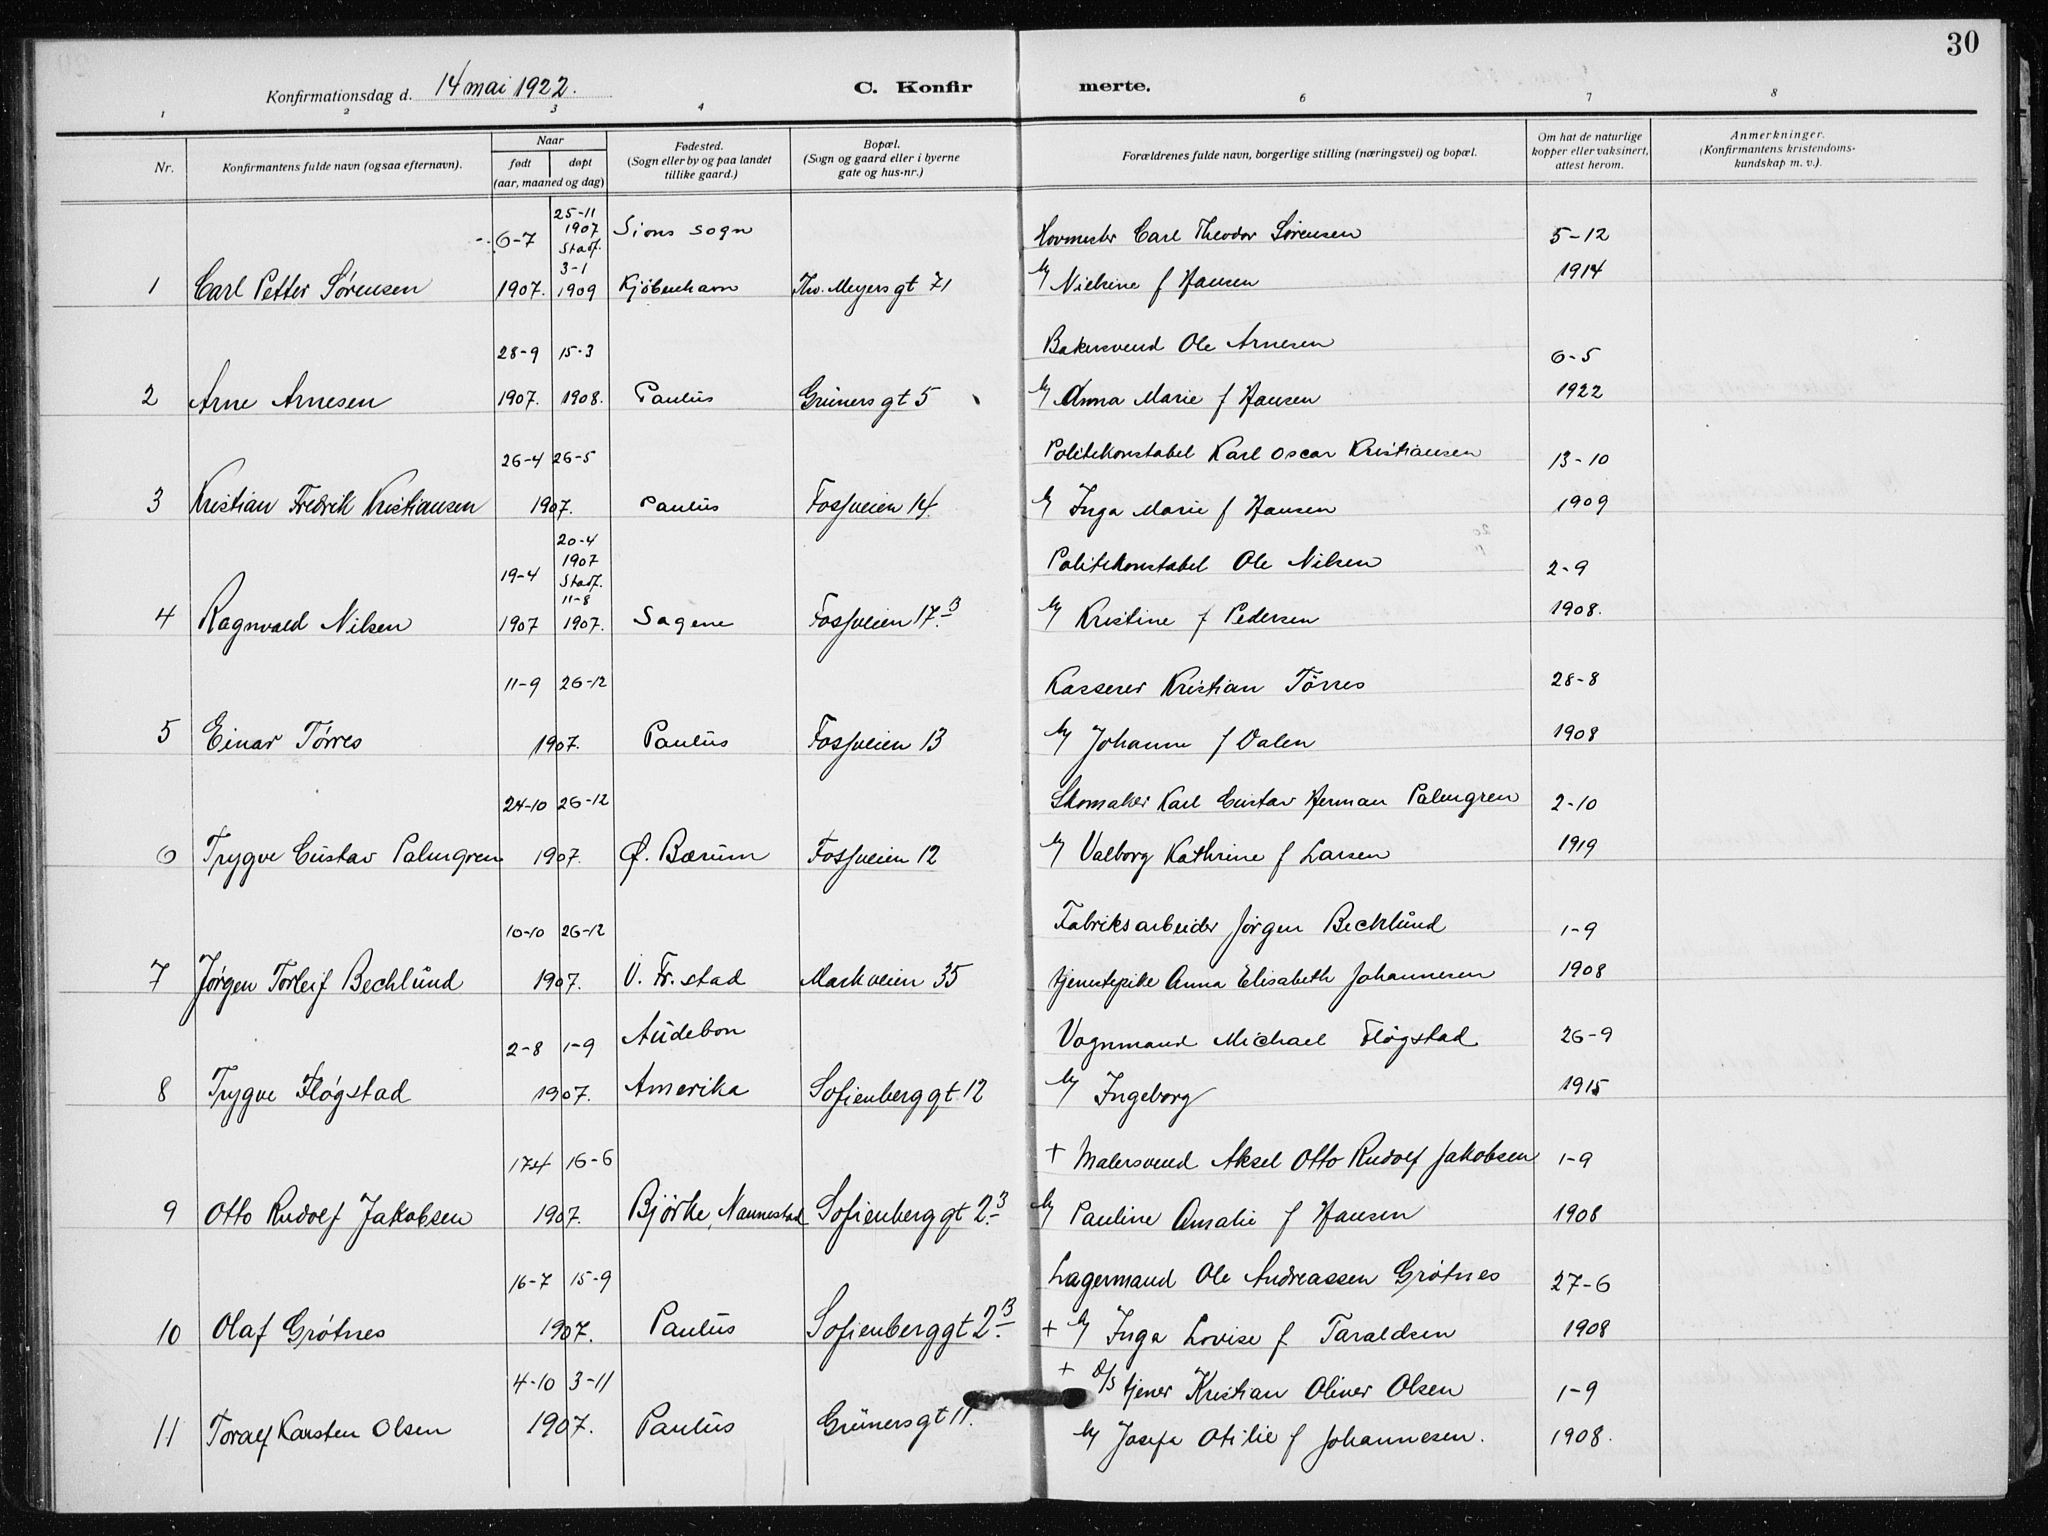 30
Konfirmationsdag d. 14 mai 1922. C. Konfirmerte.
1 2 3 4 6 7 8
Nr.
Konfirmantens fulde navn (ogsaa efternavn).
Naar
født døpt
(aar, maaned og dag)
Fødested.
(Sogn eller by og paa landet
tillike gaard.)
Bopæl.
(Sogn og gaard eller i byerne
gate og hus-nr.)
Forældrenes fulde navn, borgerlige stilling (næringsvei) og bopæl.
Om hat de naturlige
kopper eller vaksinert,
attest herom.
Anmerkninger.
(Konfirmantens kristendoms-
kundskap m. v.).
25-11
1907
Stadf.
6-7 3-1 Sions sogn Hovmester Carl Theodor Sørensen 5-12
1 Carl Petter Sørensen 1907. 1909 Kjøbenhavn Th. Meyersgt 71 Nielsine f Hansen 1914
28-9 15-3 Bakersvend Ole Arnesen 6-5
2 Arne Arnesen 1907. 1908. Paulus Grünersgt 5 Anna Marie f Hansen 1922
26-4 26-5 Politikonstabel Karl Oscar Kristiansen 13-10
3 Kristian Fredrik Kristiansen 1907. Paulus Fossveien 14 Inga Marie f Hansen 1909
20-4
1907
Stadf.
19-4 11-8 Politikonstabel Ole Nilsen 2-9
4 Ragnvald Nilsen 1907 1907. Sagene Fossveien 17 B. Kristine f Pedersen 1908.
11-9 26-12 Kasserer Kristian Tørres 28-8
5 Einar Tørres 1907. Paulus Fossveien 13 Johanne f Dalen 1908
24-10 26-12 Skomaker Karl Gustav Herman Palmgren 2-10
6 Trygve Gustav Palmgren 1907. Ø. Bærum Fossveien 12 Valborg Kathrine f Larsen 1919
10-10 26-12 Fabriksarbeider Jørgen Becklund 1-9
7 Jørgen Torleif Becklund 1907. V. Fr.stad Markveien 35 tjenestepike Anna Elisabeth Johannesen 1908
2-8 1-9 Audebon Vognmand Michael Fløgstad 26-9
8 Trygve Fløgstad 1907. Amerika Sofienberggt. 12 Ingeborg 1915
17-4 16-6 + Malersvend Aksel Otto Rudolf Jakobsen 1-9
9 Otto Rudolf Jakobsen 1907. Bjørke, Nannestad Sofienberggt 2 B. Pauline Amalie f Hansen 1908
16-7 15-9 Lagermand Ole Andreassen Grøtnes 27-6
10 Olaf Grøtnes 1907. Paulus Sofienberggt 2 B. + Inga Lovise f Taraldsen 1908
4-10 3-11 + D/s tjener Kristian Oliver Olsen 1-9
11 Toralf Karsten Olsen 1907. Paulus Grünersgt 11. Josefa Otilie f Johannesen. 1908.